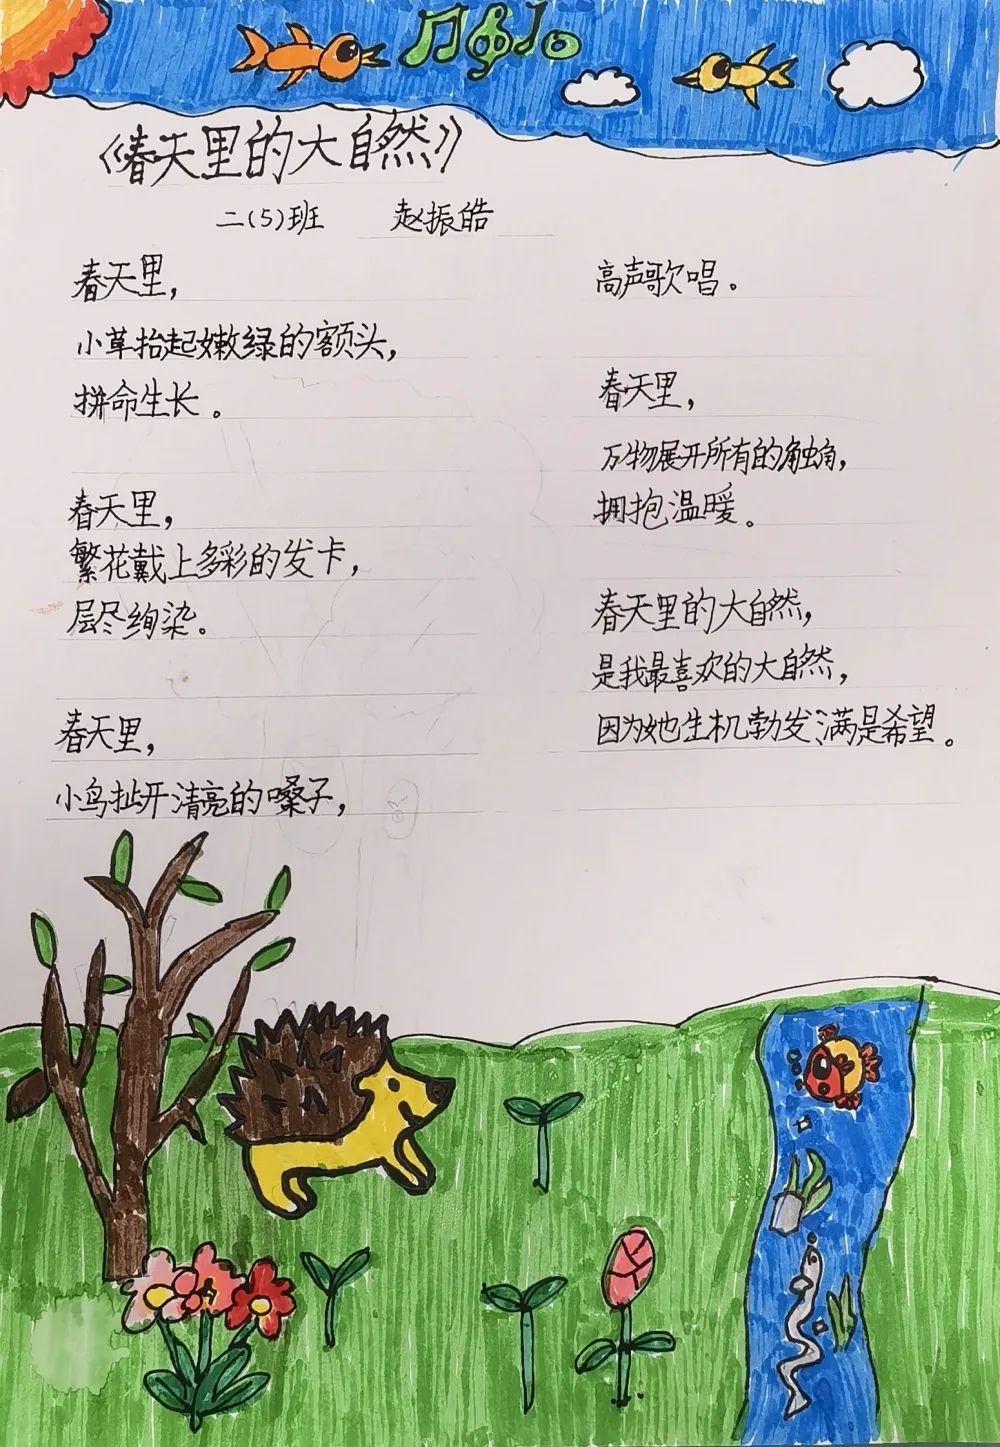 《春天里的大自然》
二(5)班 赵振皓
春天里，
小草抬起嫩绿的额头，
拼命生长。
春天里，
繁花戴上多彩的发卡，
层尽绚染。
春天里，
小鸟扯开清亮的嗓子，
高声歌唱。
春天里，
万物展开所有的触角，
拥抱温暖。
春天里的大自然，
是我最喜欢的大自然，
因为她生机勃发满是希望。